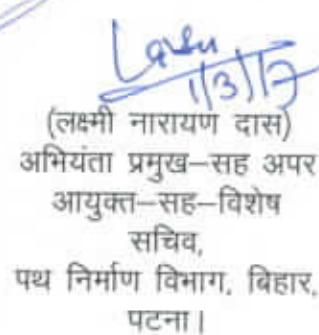 1/3/17
(लक्ष्मी नारायण दास)
अभियंता प्रमुख–सह अपर
आयुक्त–सह–विशेष
सचिव,
पथ निर्माण विभाग, बिहार,
पटना।